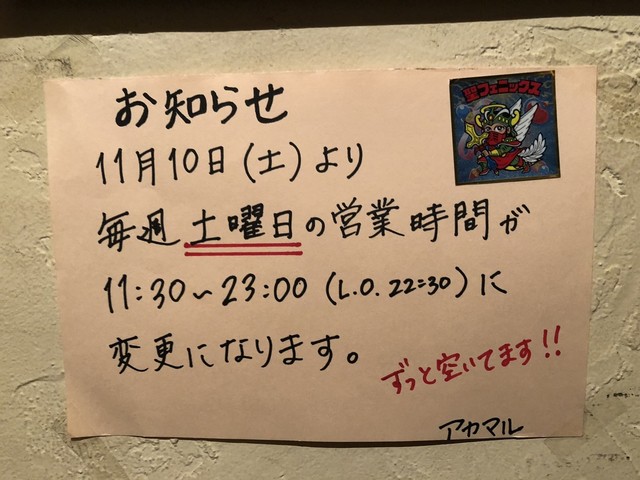 お知らせ
聖フェニックス
11月10日(土)より
毎週土曜日の営業時間が
11:30~23:00(L.O.22:30)に
変更になります。
ずっと空いてます!!
アカマル